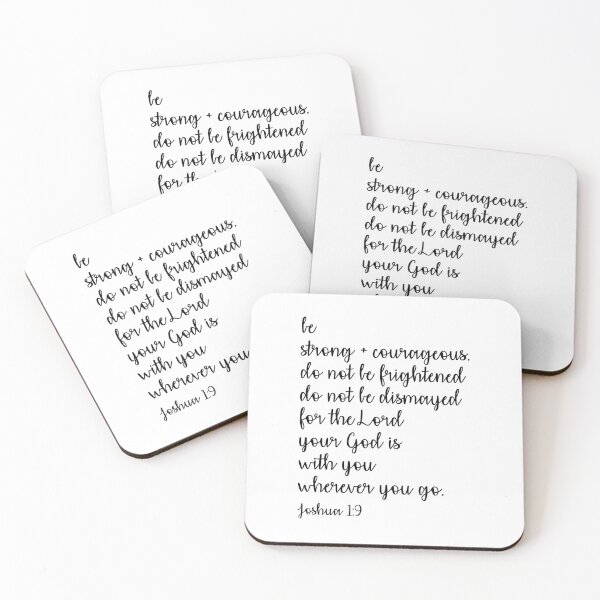 be
strong + courageous.
do not be frightened
do not be dismayed
for the
be
strong + courageous.
do not be frightened
do not be dismayed
for the Lord
your God is
with you
be
strong + courageous.
do not be frightened
do not be dismayed
for the Lord
your God is
with you
wherever you
Joshua 1:9
be
strong + courageous.
do not be frightened
do not be dismayed
for the Lord
your God is
with you
wherever you go.
Joshua 1:9